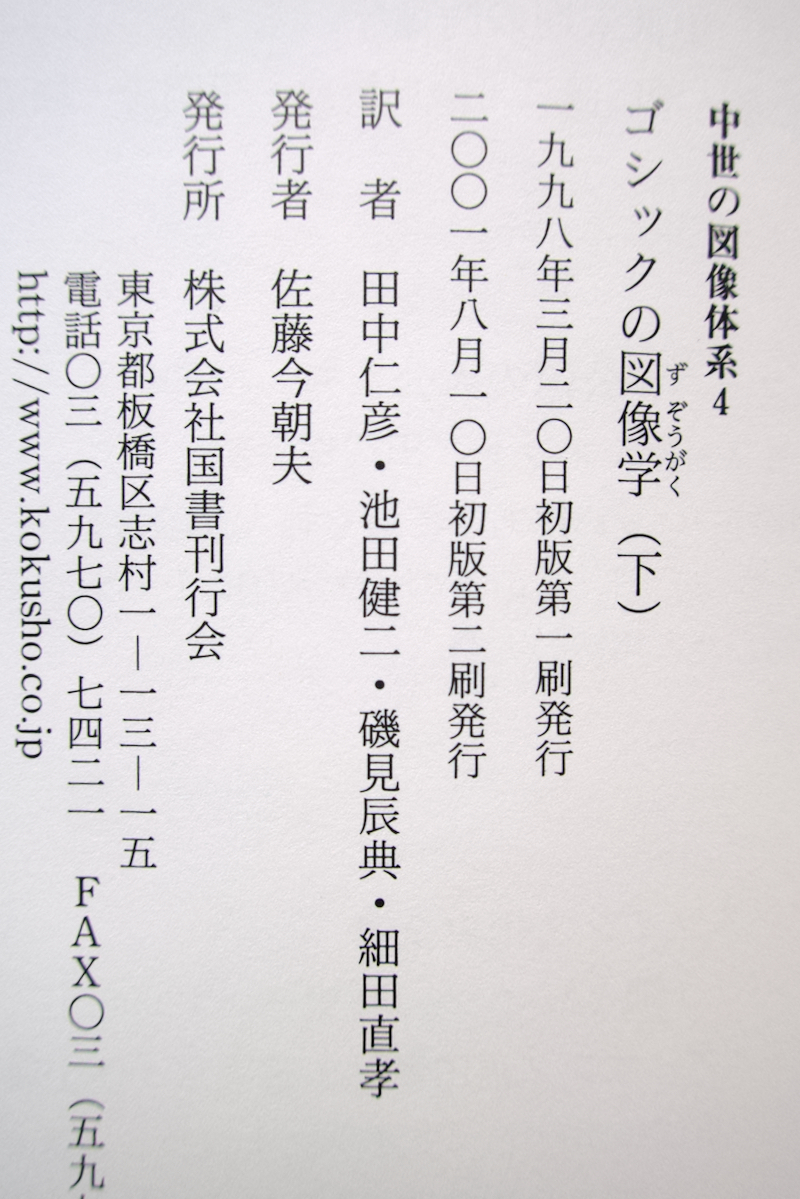 中世の図像体系4
ゴシックの図像学（下）
ずぞうがく
一九九八年三月二〇日初版第一刷発行
二〇〇一年八月一〇日初版第二刷発行
訳　者　田中仁彦・池田健二・磯見辰典・細田直孝
発行者　佐藤今朝夫
発行所　株式会社国書刊行会
東京都板橋区志村一―一三―一五
電話〇三（五九七〇）七四二一　FAX〇三（五九
http://www.kokusho.co.jp